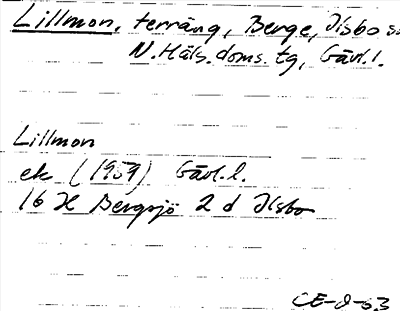 Lillmon, terräng, Berge, Ilsbo s
N. Häls. doms. tg, Gävl. l.
Lillmon
ek (1959) Gävl. l.
16 H Bergsjö 2 d Ilsbo